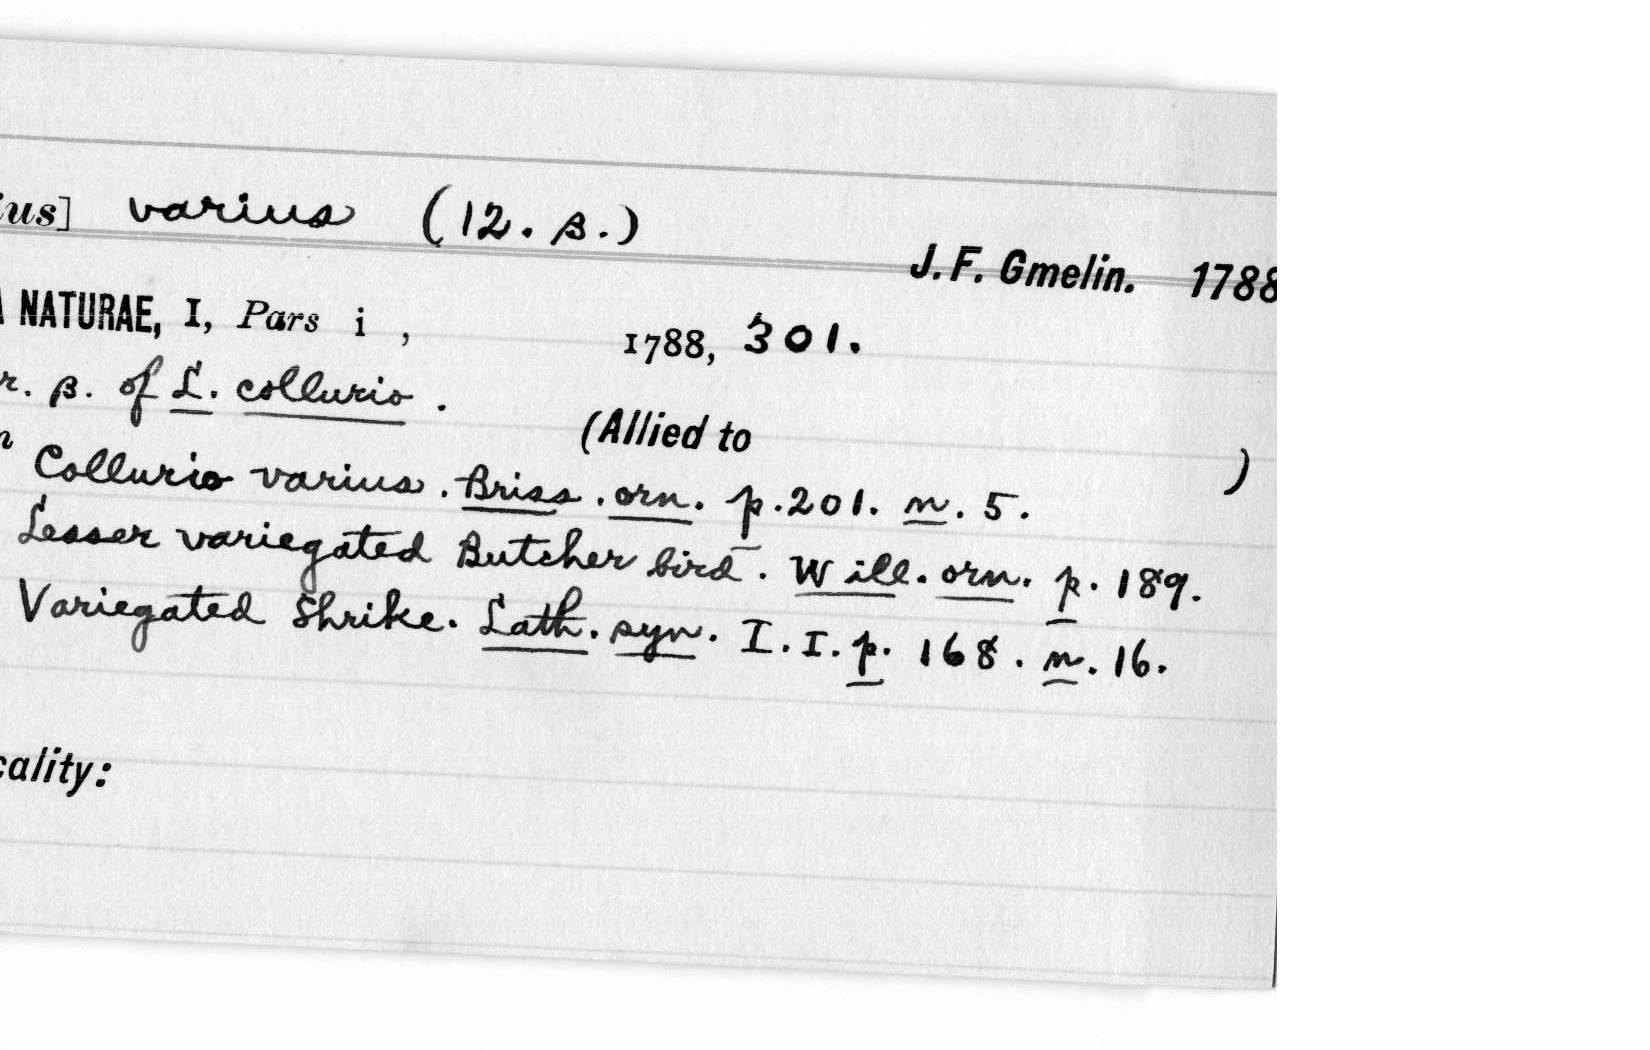 ius] varius (12. β.)
J. F. Gmelin. 1788
A NATURAE, I, Pars i , 1788, 301.
r. β. of L. collurio.
(Allied to )
n Collurio varius. Briss. orn. p. 201. n. 5.
Lesser variegated Butcher bird. Will. orn. p. 189.
Variegated Shrike. Lath. syn. I. I. p. 168. n. 16.
cality: